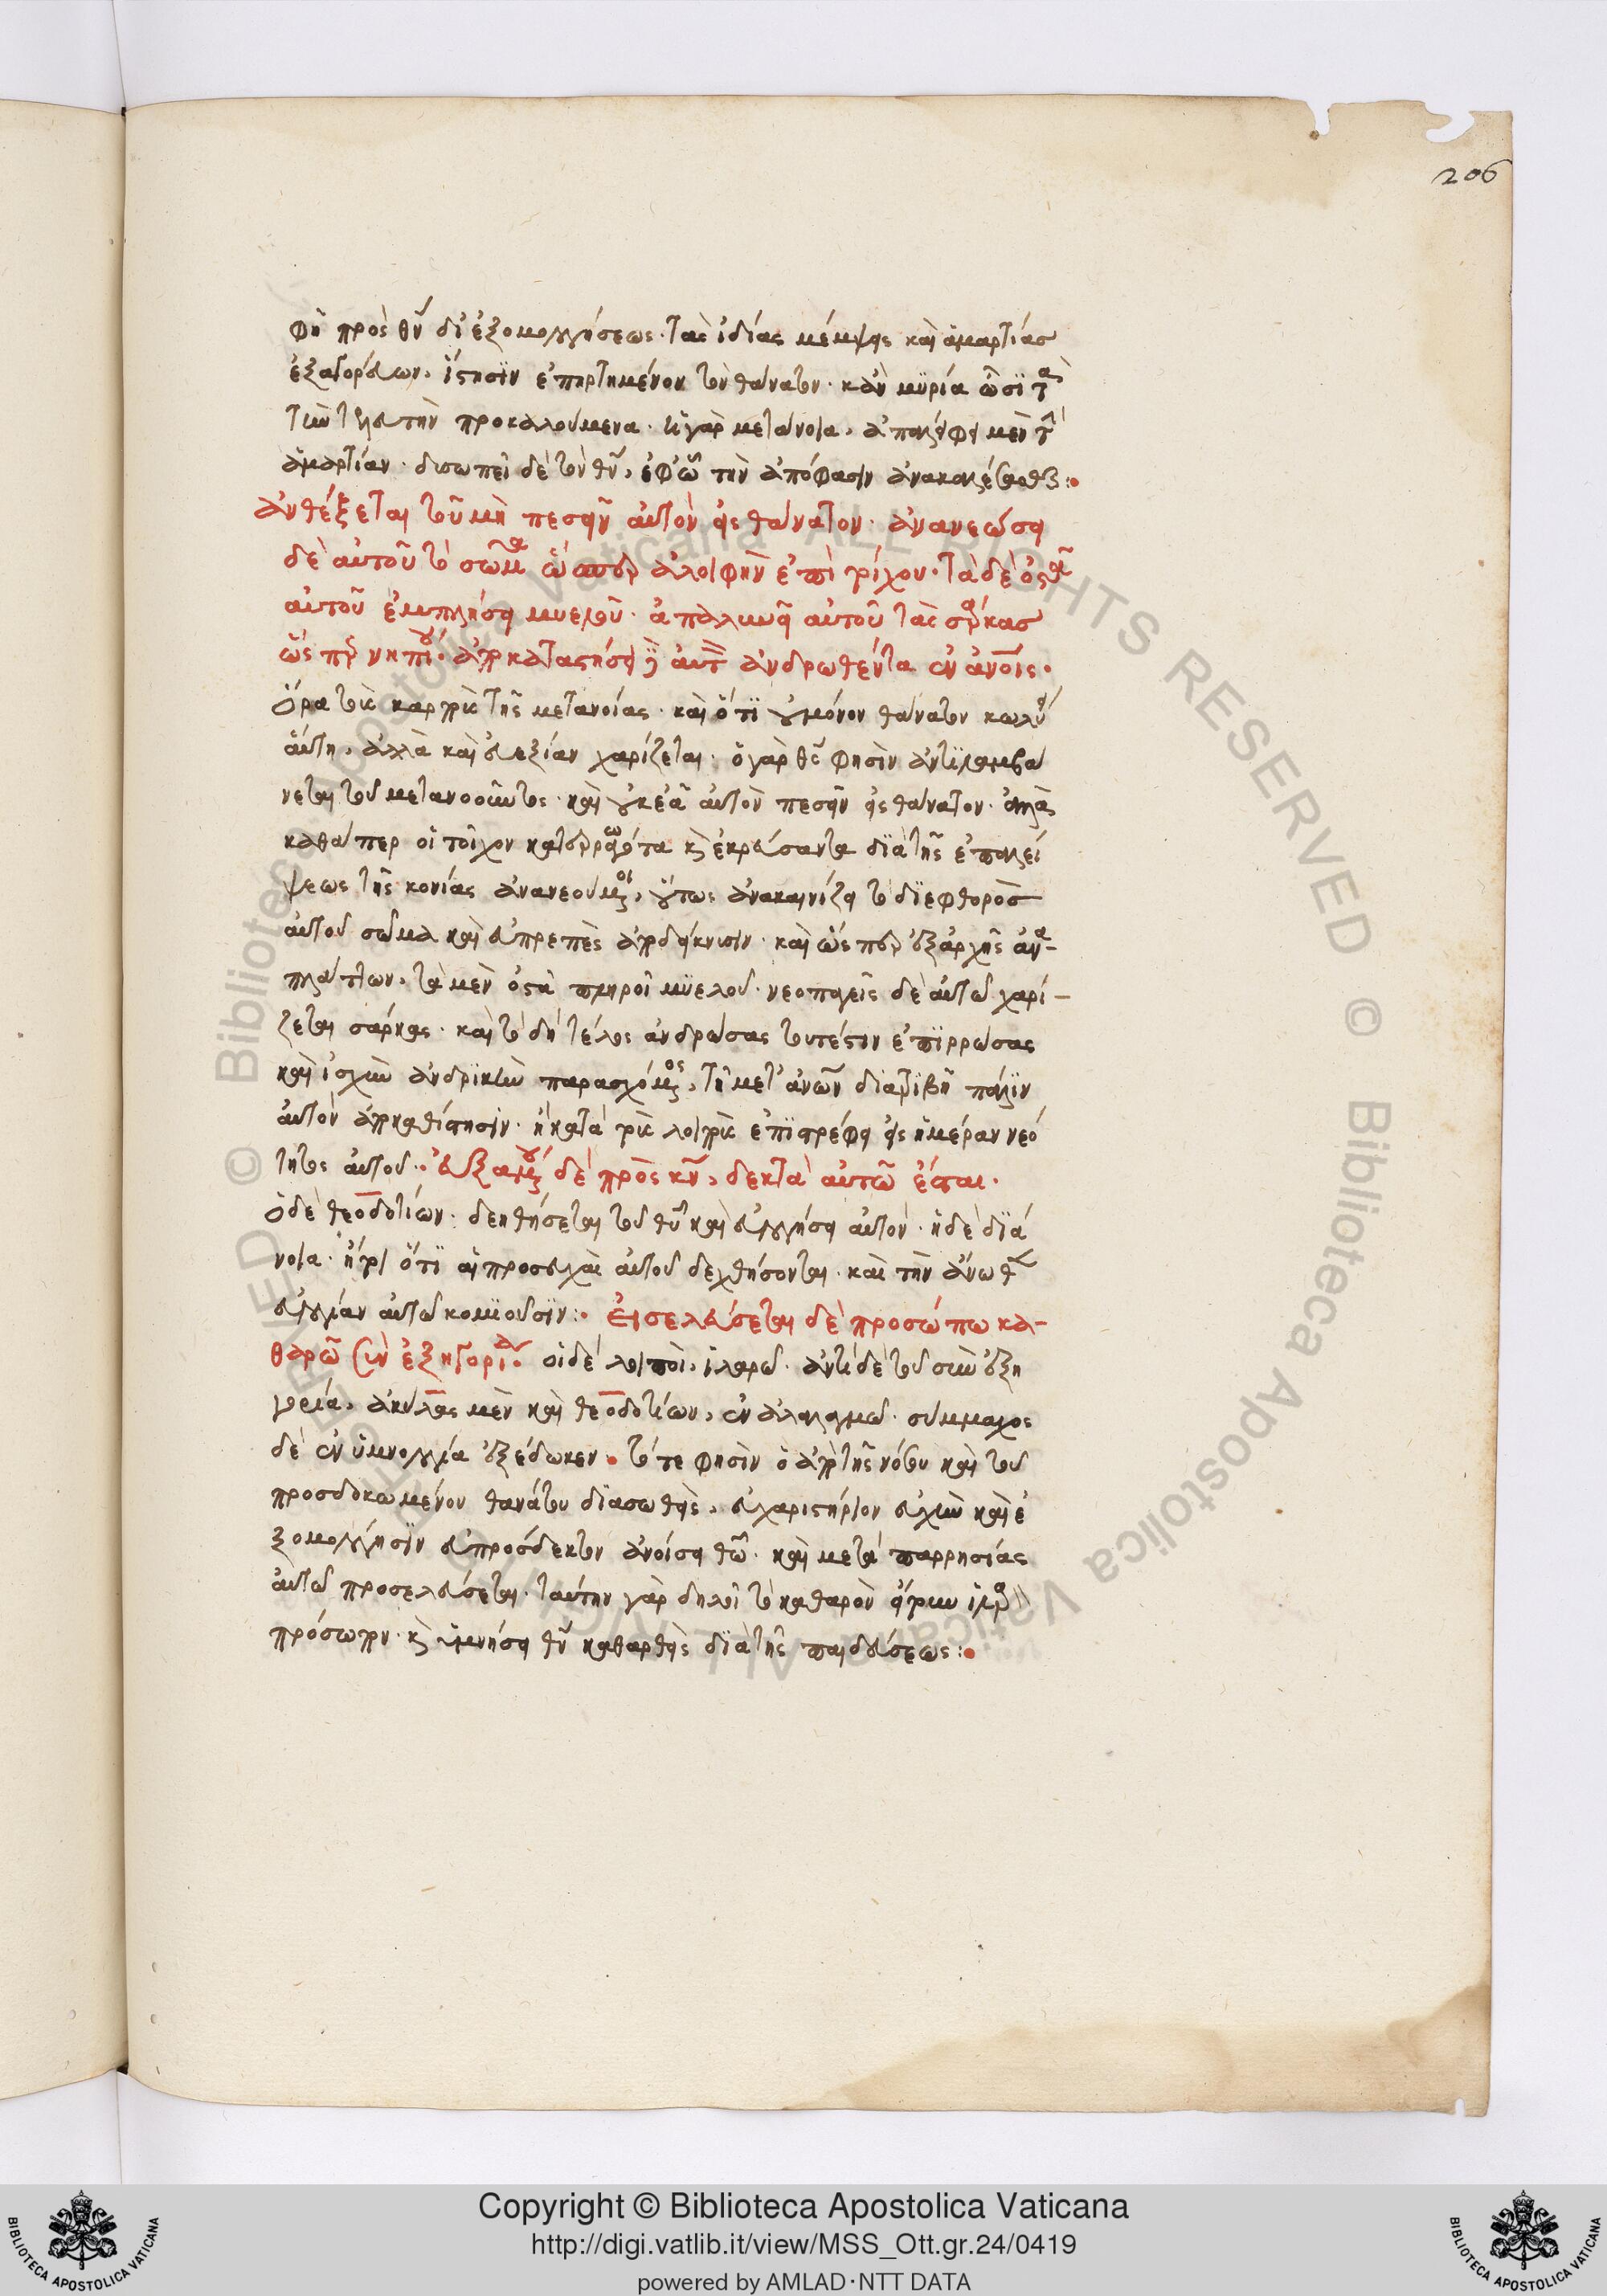 206
φῇ πρὸς θν̅ δι ἐξομολογήσεως· τὰς ἰδίας μέμψεις καὶ ἁμαρτίας
ἐξαγορεύων, ἵστησιν ἐπηρτημένον τὸν θάνατον· κἂν μυρία ὦσι τὰ
τὴν τελευτὴν προκαλούμενα· ἡ γὰρ μετάνοια, ἀπαλείφει μὲν τὴν
ἁμαρτίαν· δυσωπεῖ δὲ τὸν θν̅, ἐφ' ᾧ τὴν ἀπόφασιν ἀνακαλέσασθαι:
ἀνθέξεται τοῦ μὴ πεσεῖν αὐτὸν εἰς θάνατον· ἀνανεώσει
δὲ αὐτοῦ τὸ σῶμα ὥσπερ ἀλοιφὴν ἐπὶ τοίχου· τὰ δὲ ὀστᾶ
αὐτοῦ ἐμπλήσει μυελοῦ· ἁπαλυνεῖ αὐτοῦ τὰς σάρκας
ὥσπερ νηπίου· ἀποκαταστήσει δὲ αὐτὸν ἀνδρωθέντα ἐν ἀνοις̅·
ὅρα τοὺς καρποὺς τῆς μετανοίας· καὶ ὅτι οὐ μόνον θάνατον κωλύει
αὕτη, ἀλλὰ καὶ εὐεξίαν χαρίζεται· ὁ γὰρ θς̅ φησὶν ἀντιλαμβά
νεται τοῦ μετανοοῦντος· καὶ οὐκ ἐᾷ αὐτὸν πεσεῖν εἰς θάνατον· ἀλλὰ
καθάπερ οἱ τοῖχον κατερρωγότα καὶ ἐκρεύσαντα διὰ τῆς ἐπαλεί
ψεως τῆς κονίας ἀνανεούμενοι, οὕτως ἀνακαινίζει τὸ διεφθορὸς
αὐτοῦ σῶμα καὶ εὐπρεπὲς ἀποδείκνυσιν· καὶ ὥσπερ ἐξαρχῆς ἀνα-
πλάττων, τὰ μὲν ὀστᾶ πληροῖ μυελοῦ· νεοπαγεῖς δὲ αὐτῷ χαρί-
ζεται σάρκας· καὶ τὸ δὴ τέλος ἀνδρώσας τουτέστιν ἐπιρρώσας
καὶ ἰσχὺν ἀνδρικὴν παρασχόμενος, τῇ μετ' ἀνων̅ διατριβῇ πάλιν
αὐτὸν ἀποκαθίστησιν· ἢ κατὰ τοὺς λοιποὺς ἐπιστρέφει εἰς ἡμέραν νεό
τητος αὐτοῦ·· εὐξάμενος δὲ πρὸς κν̅, δεκτὰ αὐτῷ ἔσται·
ὁ δὲ θεοδοτίων· δεηθήσεται τοῦ θυ̅ καὶ εὐλογήσει αὐτόν· ἡ δὲ διά
νοια· ἤτοι ὅτι αἱ προσευχαὶ αὐτοῦ δεχθήσονται· καὶ τὴν ἄνωθεν
εὐλογίαν αὐτῷ κομιοῦσιν: εἰσελεύσεται δὲ προσώπῳ κα-
θαρῷ σὺν ἐξηγορίᾳ· οἱ δὲ λοιποὶ, ἱλαρῷ· ἀντὶ δὲ τοῦ σὺν ἐξη
γορίᾳ, ἀκύλας μὲν καὶ θεοδοτίων, ἐν ἀλαλαγμῷ· σύμμαχος
δὲ ἐν ὑμνολογίᾳ ἐξέδωκεν· τότε φησὶν ὁ ἀπὸ τῆς νόσου καὶ τοῦ
προσδοκωμένου θανάτου διασωθεὶς, εὐχαριστήριον εὐχὴν καὶ ἐ
ξομολόγησιν εὐπρόσδεκτον ἀνοίσει θῶ̅· καὶ μετὰ παρρησίας
αὐτῷ προσελεύσεται· ταύτην γὰρ δηλοῖ τὸ καθαρὸν ἤτοι ἱλαρὸν
πρόσωπον· καὶ ὑμνήσει θν̅ καθαρθεὶς διὰ τῆς παιδεύσεως:
Copyright © Biblioteca Apostolica Vaticana
http://digi.vatlib.it/view/MSS_Ott.gr.24/0419
powered by AMLAD·NTT DATA